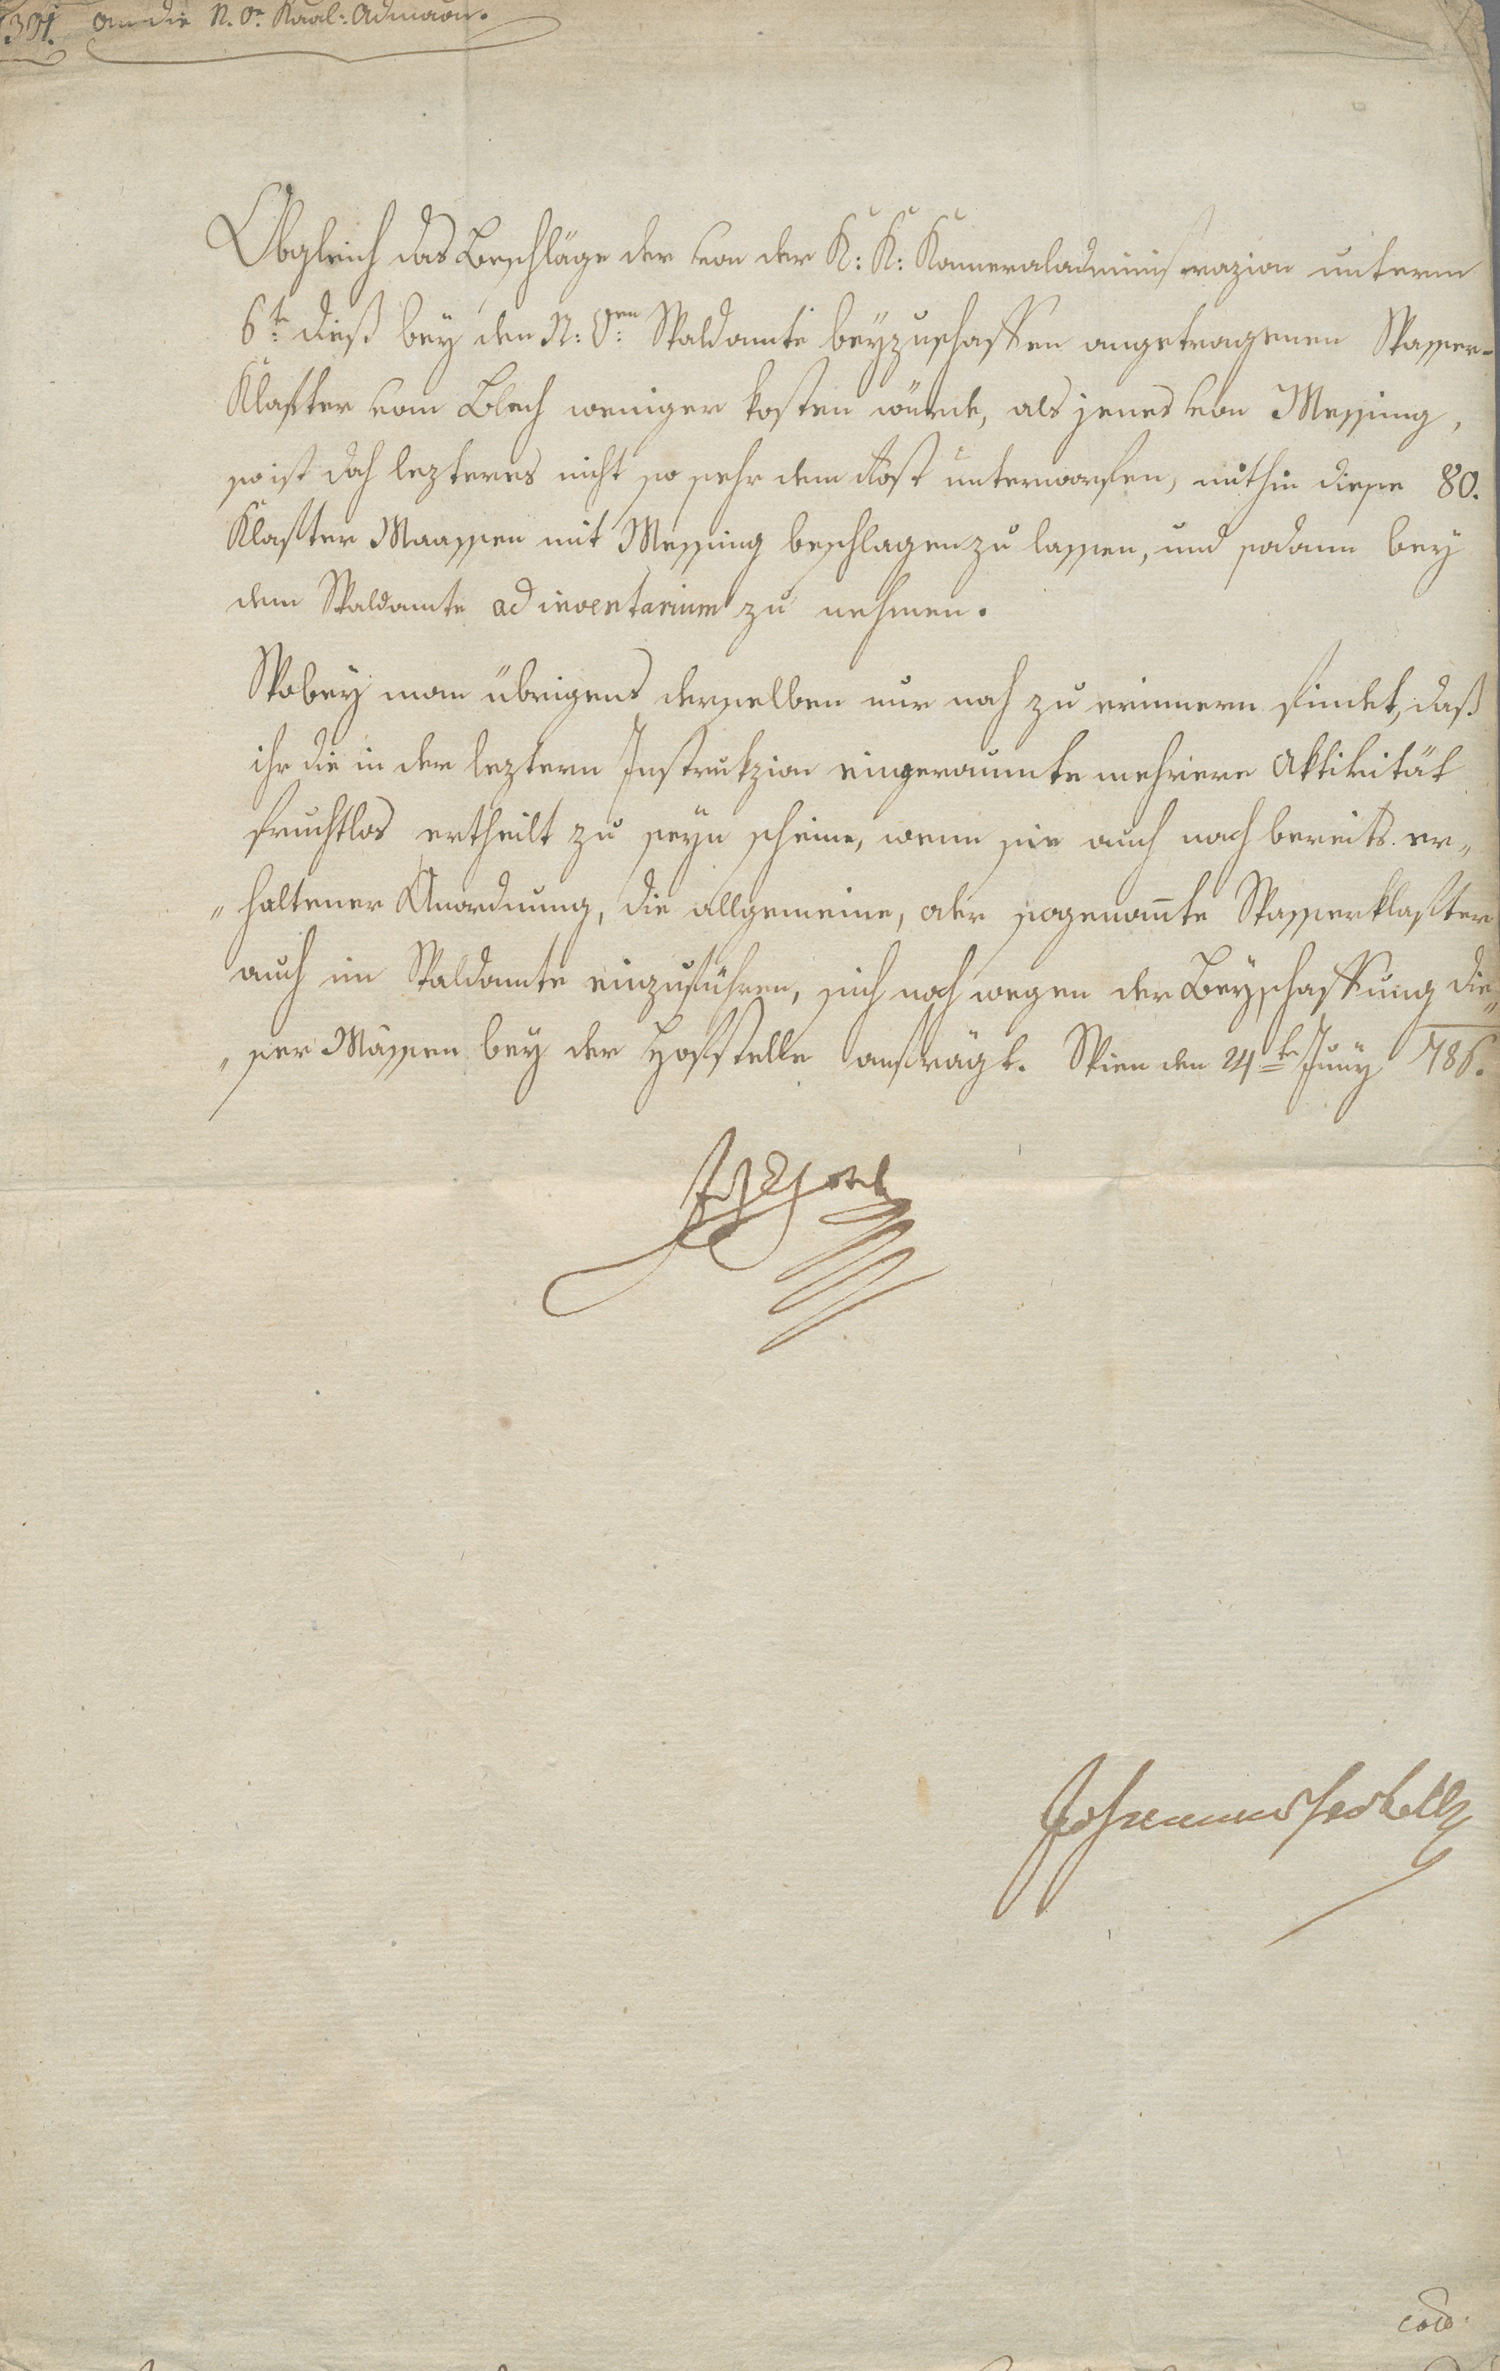 391. An die N. Öe. Kaal: Admaon.
Obgleich das Beschläge der von der K: K: Kammeraladministrazion unterm
6.te dieß bey den N: Öen. Waldamte beyzuschaffen angetragenen Wasser-
Klafter vom Blech weniger kosten würde, als jenes von Messing,
so ist doch lezteres nicht so sehr dem Rost unterworfen, mithin diese 80.
Klafter Maassen mit Messing beschlagen zu lassen, und sodann bey
dem Waldamte ad inventarium zu nehmen.
Wobey man übrigens derselben nur noch zu erinnern findet, daß
ihr die in der leztern Instrukzion eingeraumte mehrere Aktivität
fruchtlos ertheilt zu seyn scheine, wenn sie auch nach bereits er„
„haltener Anordnung, die allgemeine, oder sogenan̄te Wasserklafter
auch im Waldamte einzuführen, sich noch wegen der Beyschaffung die„
„ser Massen bey der Hofstelle anfrägt. Wien den 24te Juny 786.